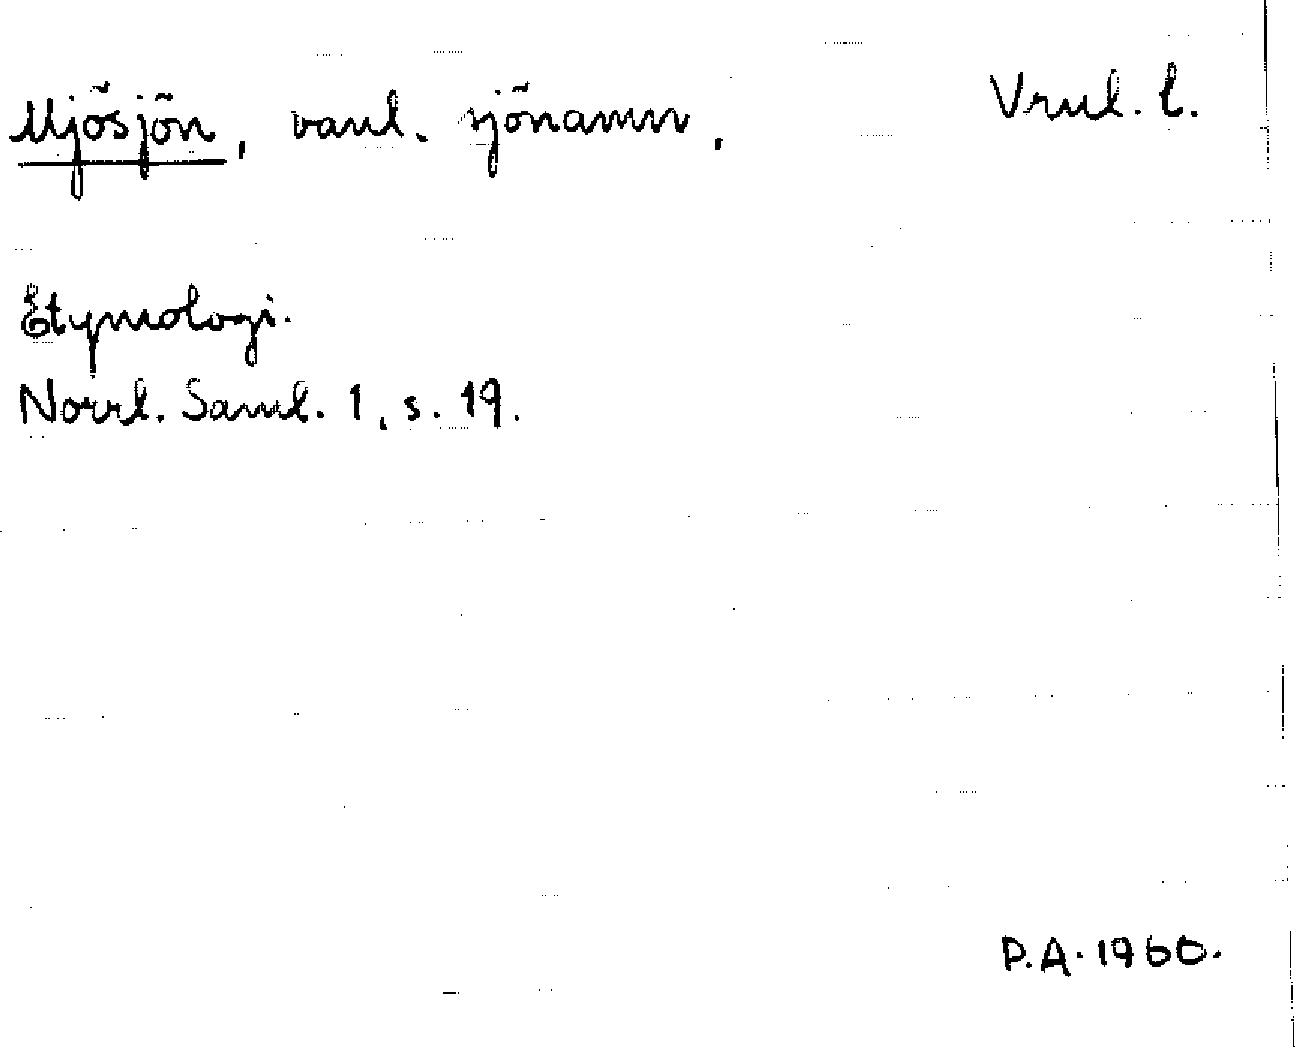 Mjösjön, vanl. sjönamn. Vrml. l.
Etymologi.
Norrl. Saml. 1, s. 19.
P.A. 1960.